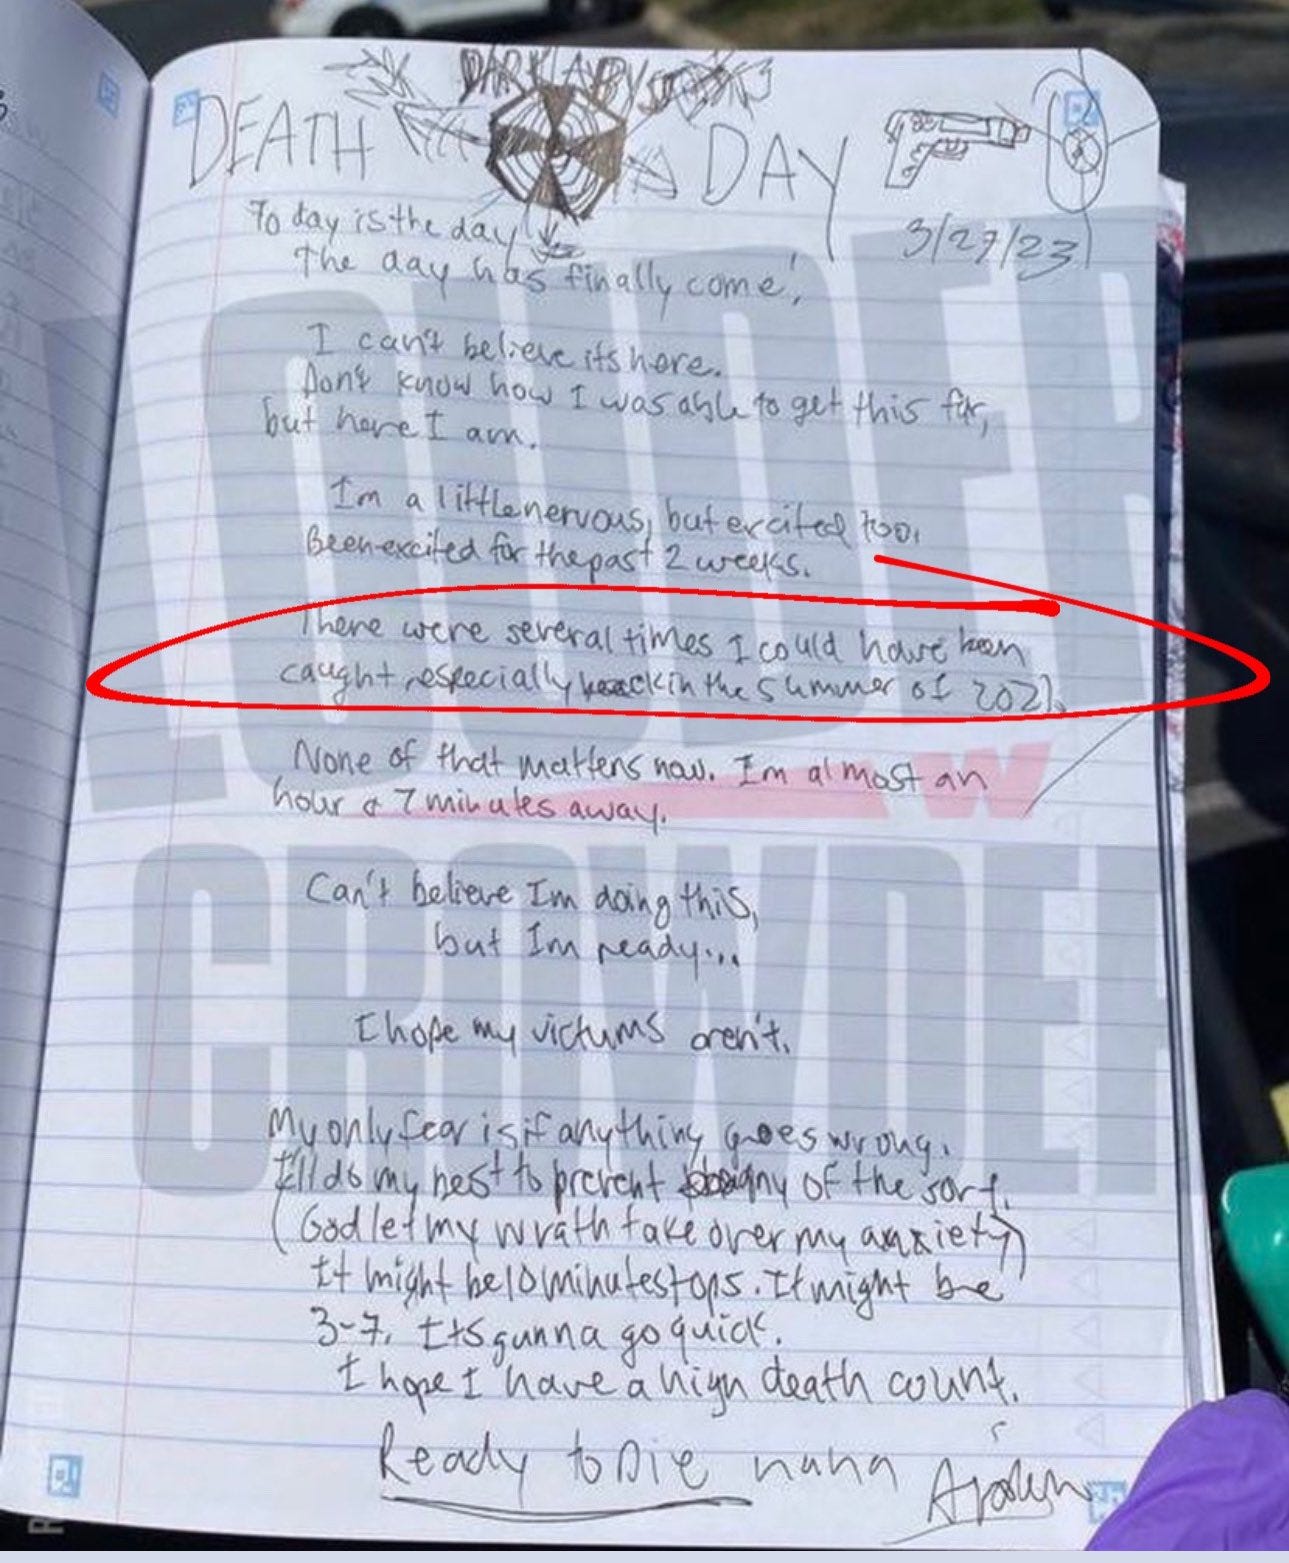 DARK ABYSS
DEATH DAY
3/27/23
Today is the day
The day has finally come!
I can't believe its here.
Don't know how I was able to get this far,
but here I am.
I'm a little nervous, but excited too.
Been excited for the past 2 weeks.
There were several times I could have been
caught, especially back in the summer of 2021.
None of that matters now. Im almost an
hour & 7 minutes away.
Can't believe Im doing this,
but Im ready...
I hope my victums aren't.
My only fear is if anything goes wrong.
I'll do my best to prevent any of the sort.
(God let my wrath take over my anxiety)
It might be 10 minutes tops. It might be
3-7. Its gunna go quick.
I hope I have a high death count.
Ready to Die haha
LOUDER W CROWDER